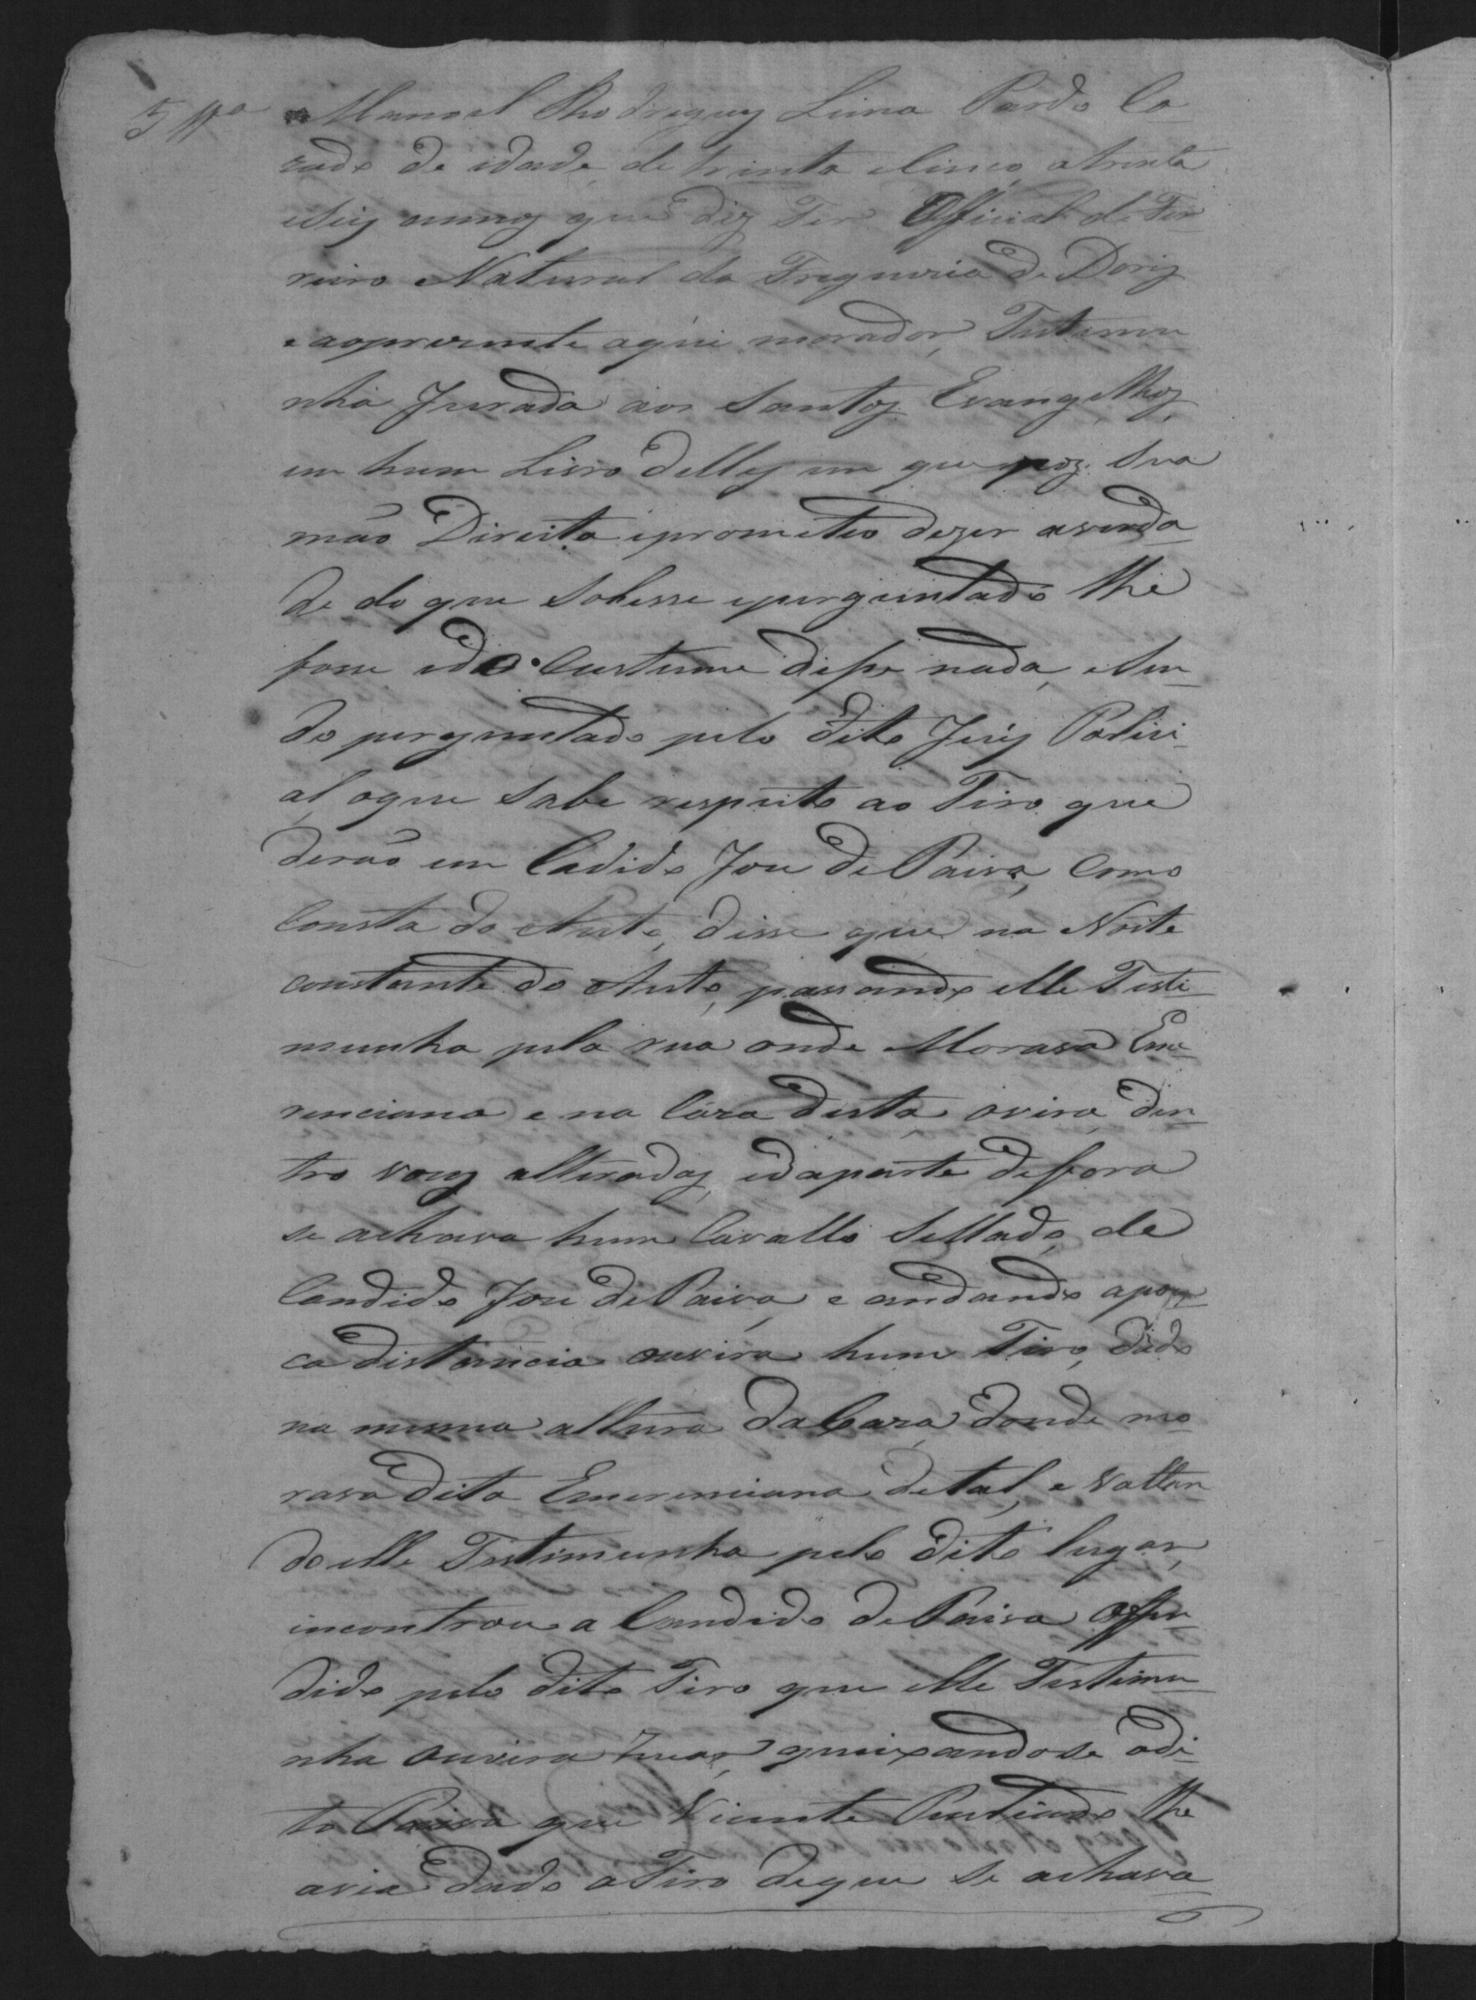 5 tta Manoel Rhodriguez Lima Pardo Ca
zado de idade de trinta e Cinco a trinta
e Seis annos que diz Ter Official de Fer
reiro Natural da Freguezia de Doriz
e ao prezente aqui morador, Testemu
nha Jurada aos Santos Evangelhos,
em hum Livro delles em que poz Sua
mão Direita e prometeo dezer a verda
de do que Sobesse e perguntado lhe
fosse e do Custume disse nada, e Sen
do perguntado pelo dito Juiz Polici
al, o que Sabe respeito ao Tiro que
derão em Cadido Joze de Paiva, Como
Consta do Auto, disse que na Noite
constante do Auto, passando elle Teste
munha pela rua onde Morava Eme
renciana e na Caza desta, ovira den
tro vozes alteradas, e da parte de fora
se achava hum Cavallo Sellado de
Candido Joze de Paiva, e andando a pou
ca distancia ouvira hum Tiro, dado
na mesma altura da Caza donde mo
rava dita Emerenciana de tal, e Voltan
do elle Testimunha pelo dito lugar,
incontrou a Candido de Paiva Offen
dido pelo dito Tiro que elle Testimu
nha ouvira tuar, queixandose o di
to Paiva que Vicente Penteado lhe
avia dado o Tiro de que Se achava